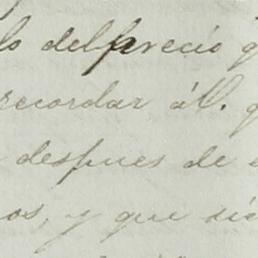 lo del parecio q
recordar á V. q
despues de e
os, y que dic